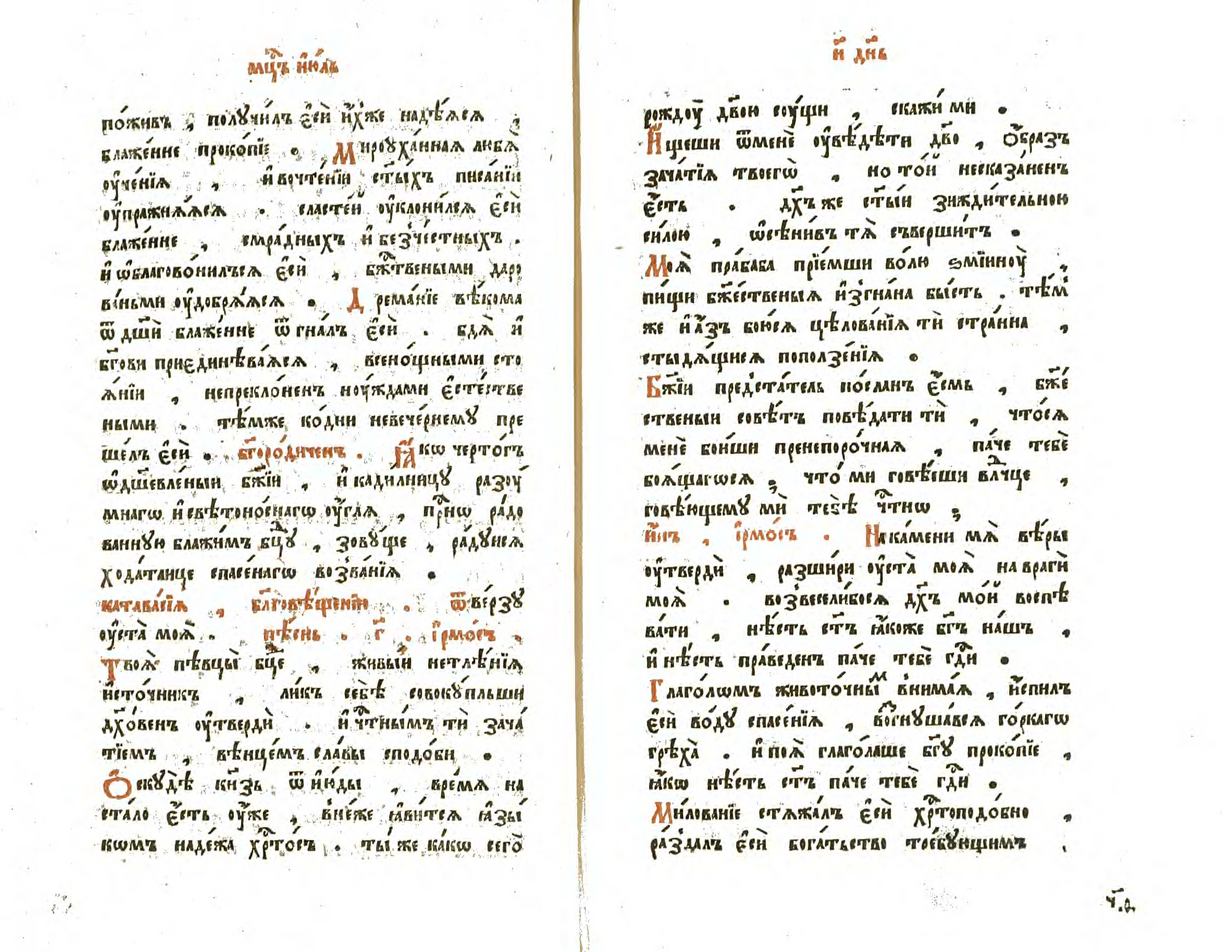 мцⷭ҇ъ і҆ю́ль
по́живъ , получи́лъ є҆сѝ и҆́хже надѣ́яся ,
блаже́нне проко́пїе . Мироуха́нная любѧ̀
ᲂу҆че́нїѧ , и҆ вочте́нїи ст҃ы́хъ писа́нїи
ᲂу҆пражнѧ́ѧсѧ . сласте́й ᲂу҆клони́лсѧ є҆сѝ
блаже́нне , смра́дныхъ и҆ без̾че́стныхъ .
и҆ ѡ҆благово́нилъсѧ є҆сѝ , бж҃твеными даро
ва́ньми ᲂу҆добрѧ́ѧсѧ . Дрема́нїе вѣ́кома
ѿ дш҃и̇ блаже́нне ѿгна́лъ є҆сѝ . бдѧ̀ и҆
бг҃ови приєдинѣва́ѧсѧ , всено́щными сто
ѧ́нїи , непрекло́ненъ ноу́ждами є҆сте́стве
ными . тѣ́мже ко́дни невече́рнему пре
ше́лъ є҆сѝ . бг҃оро́диченъ . Ꙗ҆́кѡ черто́гъ
ѡ҆дш҃евле́ныи бж҃їи , и҆ кади́лницу разоу́
мнагѡ и҆ свѣтоно́снагѡ ᲂу҆́глѧ , при́снѡ ра́до
ванную блажи́мъ бцⷣу , зову́ще , ра́дуисѧ
хода́таице спасе́нагѡ воз̾ва́нїѧ .
катава́сїѧ , бл҃говѣ́щенїю . ѿве́рзу
ᲂу҆ста̀ моѧ̀ . пѣ́снь . г҃ . і҆рмо́съ .
Твоѧ̀ пѣвцы̀ бцⷣе , живы́й нетлѣ́нїѧ
и҆сто́чникъ , ли́къ себѣ̀ совоку́пльши
дх҃о́венъ ᲂу҆твердѝ . и҆ чⷭ҇тны́мъ тѝ зача́
тїемъ , вѣнце́мъ сла́вы сподо́би .
Ѻ҆скудѣ̀ кн҃зь ѿ і҆ю́ды , вре́мѧ на
ста́ло є҆́сть ᲂу҆́же , в̾не́же ꙗ҆ви́тсѧ ꙗ҆зы́
кѡмъ наде́жа хрⷭ҇то́съ . ты́ же ка́кѡ сего̀
и҃ дн҃ь
рождоу̀ дв҃ою соу́щи , скажи́ ми .
И҆́щеши ѿменѐ ᲂу҆вѣ́дѣти дв҃о , ѻ҆́бразъ
зача́тїѧ твоегѡ̀ , но то́й несказа́ненъ
є҆́сть . дх҃ъ же ст҃ы́и зижди́тельною
си́лою , ѡ҆сѣни́въ тѧ̀ съверши́тъ .
Моѧ̀ праба́ба прїе́мши во́лю ѕмїи́ноу ,
пи́щи бж҃е́ственыѧ и҆з̾гна́на бы́сть . тѣ́м
же и҆ а҆́зъ бою́сѧ цѣлова́нїѧ тѝ стра́нна ,
стыдѧ́щисѧ поползе́нїѧ .
Бж҃їи предста́тель по́сланъ є҆́смь , бж҃е́
ственыи совѣ́тъ повѣ́дати тѝ , что́сѧ
менѐ бои́ши пренепоро́чнаѧ , па́че тебѐ
боѧ́щагѡсѧ ; что́ ми говѣ́еши влⷣчце ,
говѣ́ющему мѝ тебѣ̀ чⷭ҇тнѡ ;
и҆́нъ , і҆рмо́съ . На ка́мени мѧ̀ вѣ́ры
ᲂу҆твердѝ , разшири ᲂу҆ста̀ моѧ̀ на врагѝ
моѧ̀ . воз̾весели́босѧ дх҃ъ мо́й воспѣ
ва́ти , нѣ́сть ст҃ъ ꙗ҆́коже бг҃ъ на́шъ ,
и҆ нѣ́сть пра́веденъ па́че тебѐ гдⷭ҇и .
Глаго́лѡмъ животочны́м в̾нима́ѧ , и҆спи́лъ
є҆сѝ во́ду спасе́нїѧ , возгнуша́всѧ го́ркагѡ
грѣха̀ . и҆ поѧ̀ глаго́лаше бг҃у проко́пїе ,
ꙗ҆́кѡ нѣ́сть ст҃ъ па́че тебѐ гдⷭ҇и .
Ми́лованїе стѧжа́лъ є҆сѝ хрⷭ҇топодо́бно ,
разда́лъ є҆сѝ бога́тьство тре́бующимъ